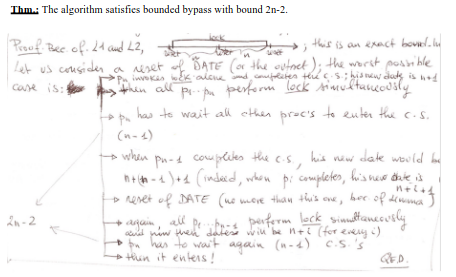 Thm.: The algorithm satisfies bounded bypass with bound 2n-2.
lock
Proof. Bec. of L1 and L2, ; this is an exact bound. In
let us consider a reset of DATE (or the outset); the worst possible
case is: pn invokes lock alone and completes the c.s.; his new date is n+1
then all p1...pn perform lock simultaneously
pn has to wait all other proc's to enter the c.s.
(n-1)
when pn-1 completes the c.s., his new date would be
n+(n-1)+1 (indeed, when pi completes, his new date is
n+i+1
reset of DATE (no more than this one, bec. of lemma )
2n-2
again all p1...pn-1 perform lock simultaneously
and new fresh dates will be n+i (for every i)
pn has to wait again (n-1) c.s.'s
then it enters!
Q.E.D.